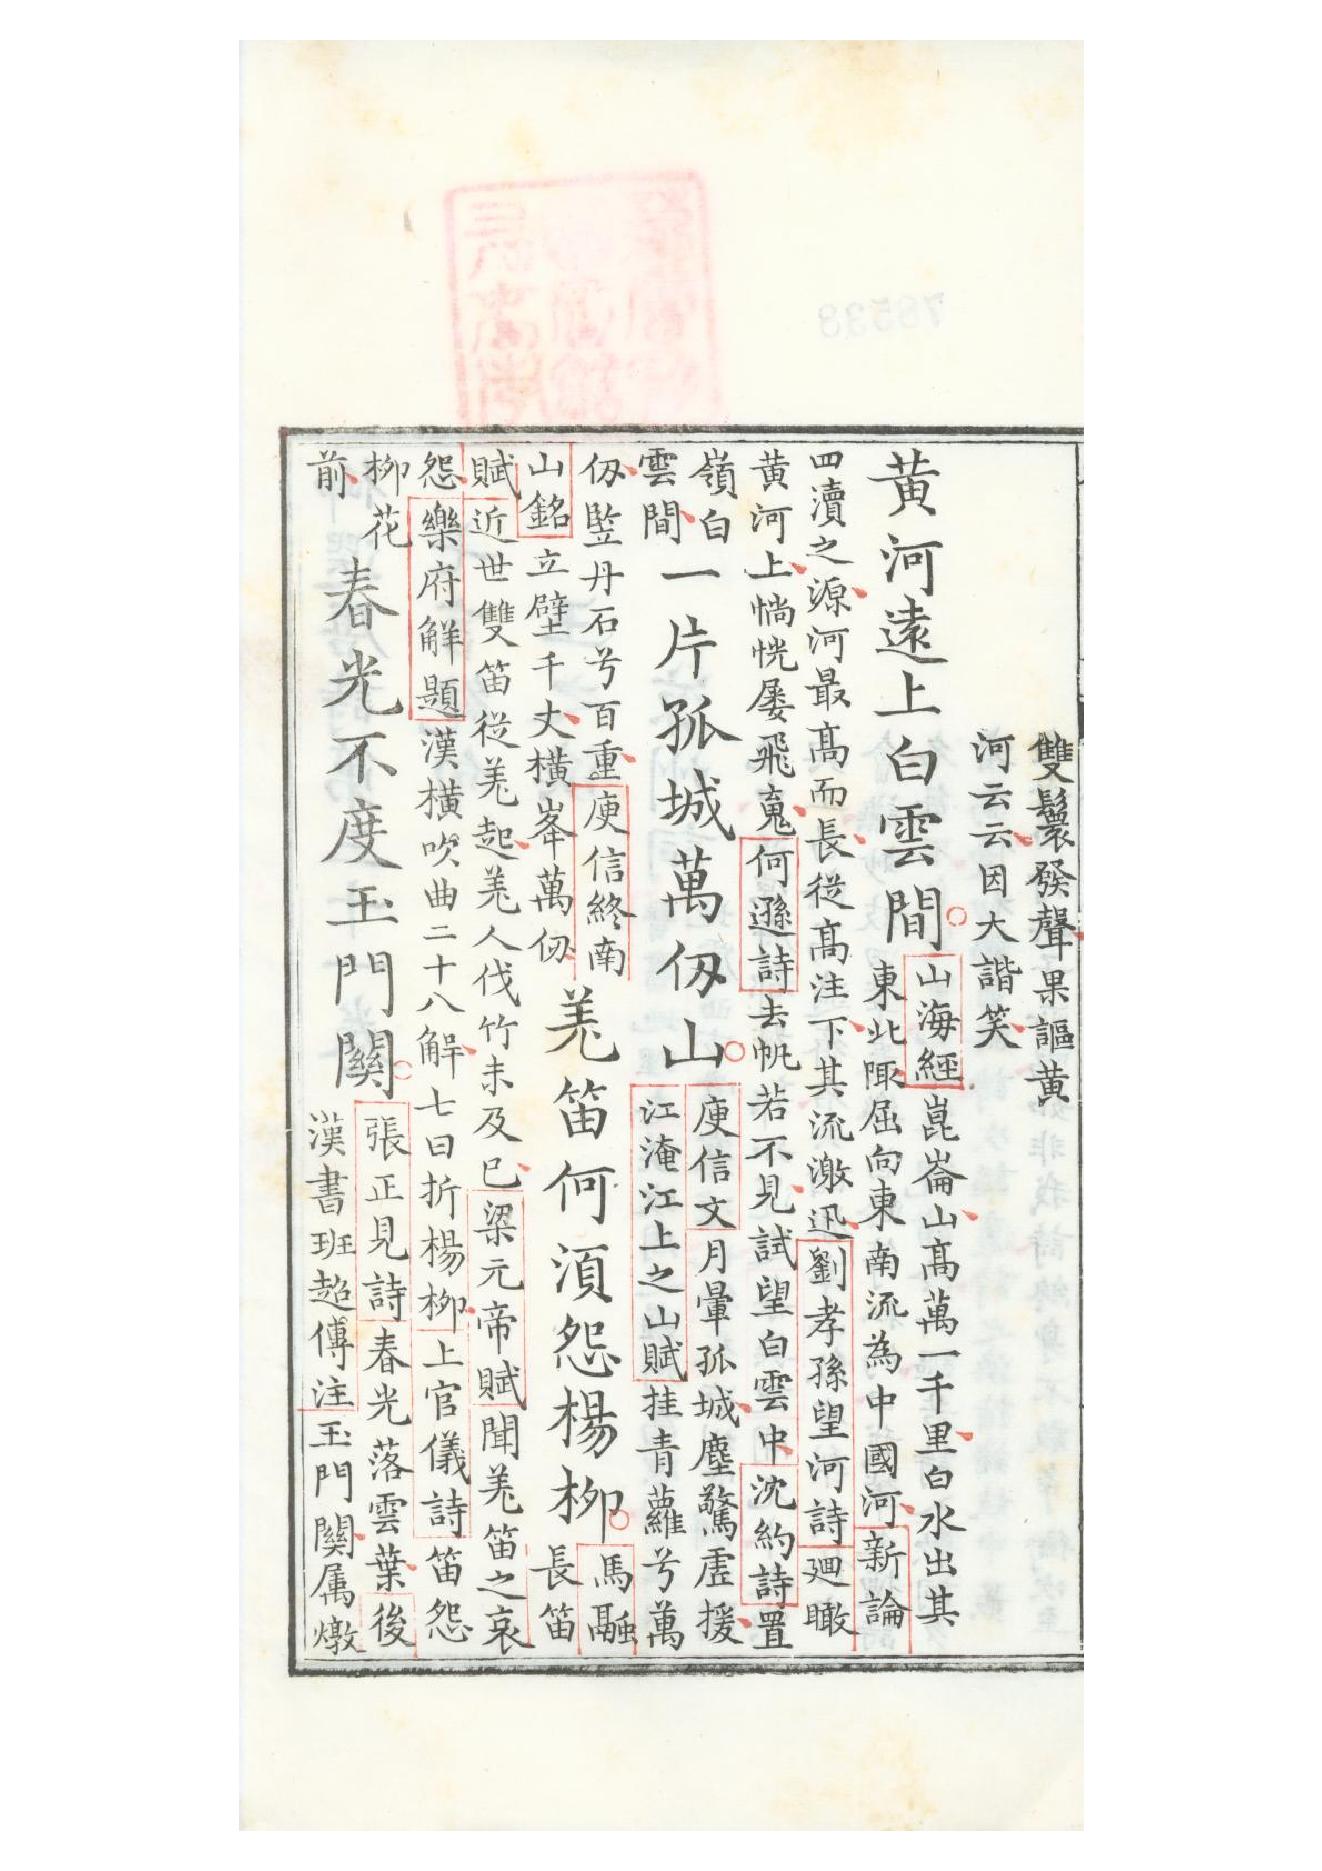 雙鬟發聲果謳黃
河云云因大諧笑
黃河遠上白雲間
山海經崑崙山高萬一千里白水出其
東北陬屈向東南流為中國河新論
四瀆之源河最高而長從高注下其流激迅劉孝孫望河詩廻瞰
黃河上惝怳屢飛䰟何遜詩去帆若不見試望白雲中沈約詩置
嶺白
雲間
一片孤城萬仞山
庾信文月暈孤城塵驚虛援
江淹江上之山賦挂青蘿兮萬
仞竪丹石兮百重庾信終南
山銘立壁千丈橫峯萬仞
羌笛何須怨楊柳
馬融
長笛
賦近世雙笛從羌起羌人伐竹未及已梁元帝賦聞羌笛之哀
怨樂府解題漢橫吹曲二十八解七曰折楊柳上官儀詩笛怨
柳花
前
春光不度玉門關
張正見詩春光落雲葉後
漢書班超傳注玉門關属燉